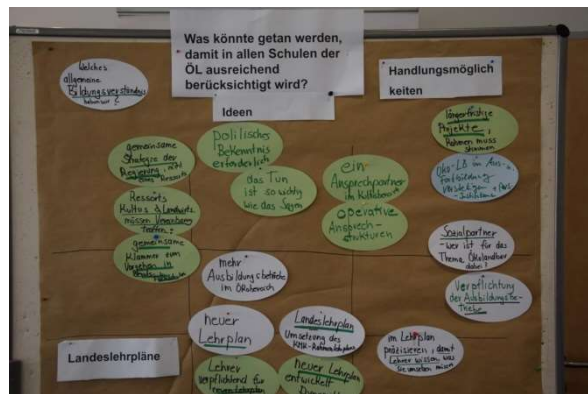 Was könnte getan werden,
damit in allen Schulen der
ÖL ausreichend
berücksichtigt wird?
Ideen
Handlungsmöglich
keiten
Welches
allgemeine
Bildungsverständnis
haben wir?
gemeinsame
Strategie der
Regierung, nicht
eines Ressorts
Ressorts
Kultus & Landwirts.
müssen Vereinbarg.
treffen
gemeinsame
Klammer zum
Vorgehen in
politisches
Bekenntnis
erforderlich
das Tun
ist so wichtig
wie das Sagen
ein
Ansprechpartner
im
operative
Ansprech-
strukturen
längerfristige
Projekte,
Rahmen muss
stimmen
Öko-LB in Aus-
fortbildung
Sozialpartner
- wer ist für das
Thema Ökolandbau
dabei?
Verpflichtung
der Ausbildungsbe-
triebe
mehr
Ausbildungsbetriebe
im Ökobereich
neuer
Lehrplan
Landeslehrplan
Umsetzung des
KMK-Rahmenlehrplans
im Lehrplan
präzisieren, damit
Lehrer wissen, was
sie umsetzen müssen
Landeslehrpläne
Lehrer
verpflichtend für
neuer Lehrplan
entwickelt